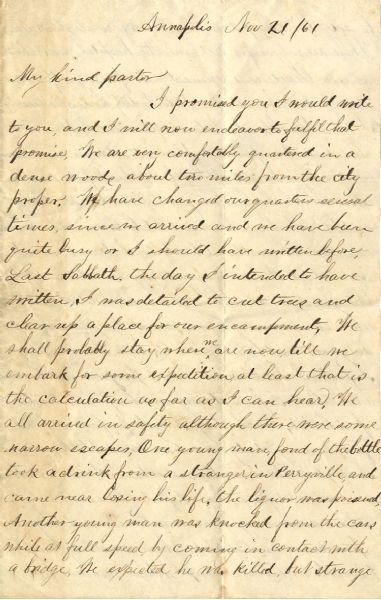 Annapolis Nov 21/61
My kind pastor
I promised you I would write
to you, and I will now endeavor to fulfil that
promise. We are very comfortably quartered in a
dense woods about two miles from the city
proper. We have changed our quarters several
times, since we arrived and we have been
quite busy or I should have written before,
Last Sabbath the day I intended to have
written, I was detailed to cut trees and
clear up a place for our encampment. We
shall probably stay where we are now till we
embark for some expedition at least that is
the calculation as far as I can hear. We
all arrived in safety although there were some
narrow escapes. One young man, fond of the bottle
took a drink from a stranger in Perryville, and
came near losing his life, the liquor was poisened,
Another young man was knocked from the cars
while at full speed by coming in contact with
a bridge, We expected he was killed, but strange